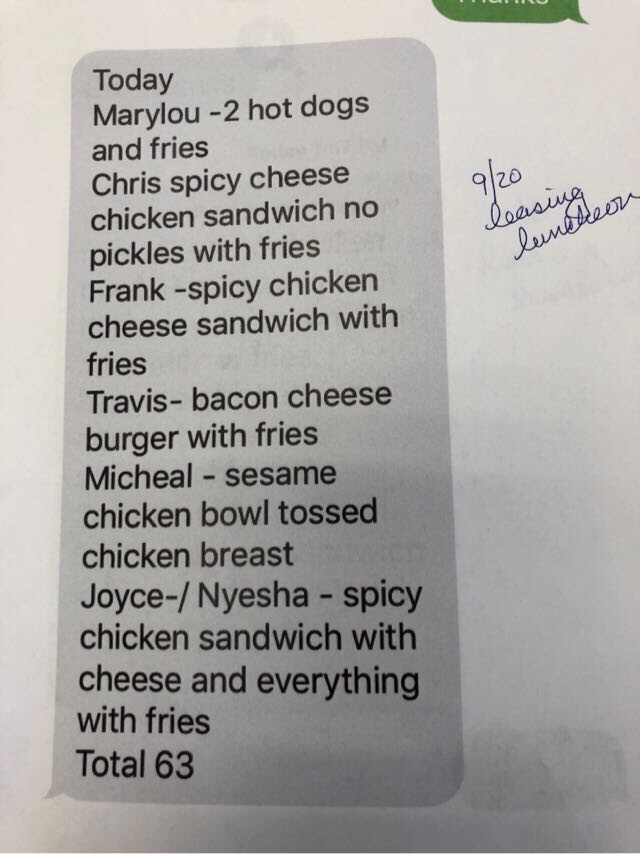 Thanks
Today
Marylou -2 hot dogs
and fries
Chris spicy cheese
chicken sandwich no
pickles with fries
Frank -spicy chicken
cheese sandwich with
fries
Travis- bacon cheese
burger with fries
Micheal - sesame
chicken bowl tossed
chicken breast
Joyce-/ Nyesha - spicy
chicken sandwich with
cheese and everything
with fries
Total 63
9/20
leasing
luncheon